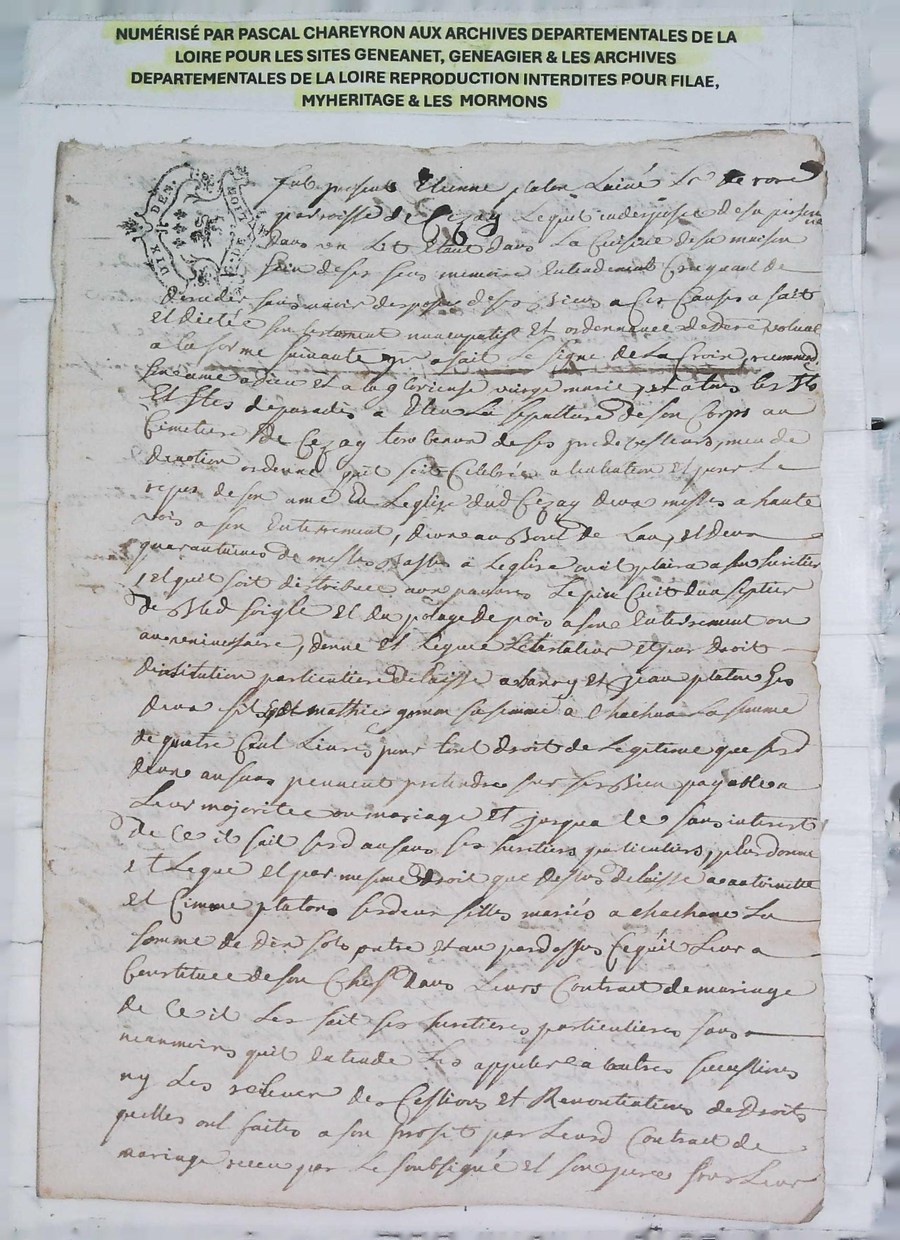 NUMÉRISÉ PAR PASCAL CHAREYRON AUX ARCHIVES DEPARTEMENTALES DE LA
LOIRE POUR LES SITES GENEANET, GENEAGIER & LES ARCHIVES
DEPARTEMENTALES DE LA LOIRE REPRODUCTION INTERDITES POUR FILAE,
MYHERITAGE & LES MORMONS
DIX DEN.
fut present Etienne platon Lainé
parroisse de Cezay Lequel indispose de sa personne
dans un Lit Etant dans La Cuisine de sa maison
sain de ses sens memoire Entendement Craignant de
deceder sans avoir dispose de ses Biens a Ces Causes a fait
Et dictée son testament nuncupatif Et ordonnance de derre volonté
a la forme suivante qu. a fait Le signe de La Croix, recommandé
son ame a dieu Et a la glorieuse vierge marie, Et a tous les Sts
Et Stes de paradis a Eleu La sepulture de son Corps au
Cimetiere de Cezay tombeaux de ses predecesseurs, meu de
devotion ordonne quil soit Celebrée a Et pour Le
repos de son ame En Leglise dud Cezay deux messes a haute
vois a son Enterrement, deux au Bout de Lan, et deux
quarantaines de messes Basses a Leglise quil plaira a son heritier
, et quil soit distribue aux pauvres Le pain Cuit dun septier
de Bled soigle Et du potage de pois a son Enterrement ou
anniversaire, donne Et Legue Letestateur et par droit
dinstitution particuliere delaisse a Et jean platon ses
deux fils Et mathier sa femme a chachun La somme
de quatre Cent Livres pour tout droit de Legitime que sesd
deux anfans peuvent pretendre sur ses Bien payable a
Leur majoritée ou mariage Et jusqua Ce sans interest
de Ce il fait sesd anfans ses heritiers particuliers, plus donne
et Legue et par mesme droit que dessus delaisse a antoinette
et platon ses deux filles mariés a chachune La
somme de dix sols outre et au par dessus Ce quil Leur a
Constituée de son Chef dans Leurs Contract de mariage
de Ce il Les fait ses heritieres particulieres sans
neanmoins quil Entende Les appeller a autres successions
ny Les relever des Cessions et Renontiations de Droits
quelles ont faites a son profit par Leurd Contract de
mariage receu par Le soubsigné Et son pere sous Leur